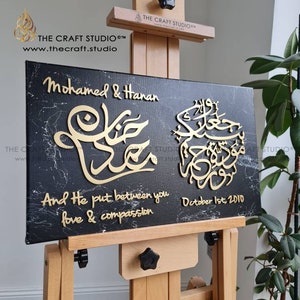 THE CRAFT STUDIO
www.thecraft.studio
Mohamed & Hanan
محمد حنان
وجعل بينكم مودة ورحمة
And He put between you
love & compassion
October 1st, 2010